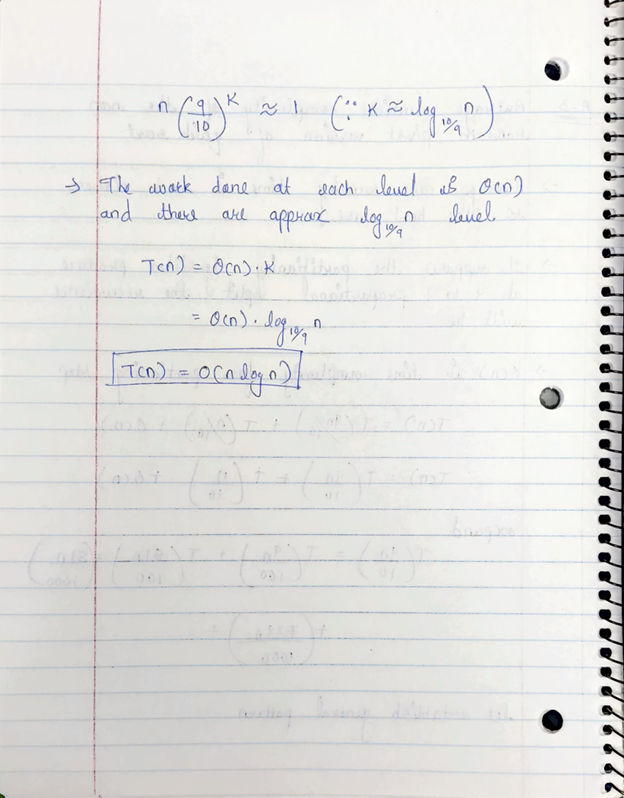 n (9/10)^K ≈ 1 (∵ K ≈ log_{10/9} n)
→ The work done at each level is O(n)
and there are approx log_{10/9} n level
T(n) = O(n) · K
= O(n) · log_{10/9} n
T(n) = O(n log n)